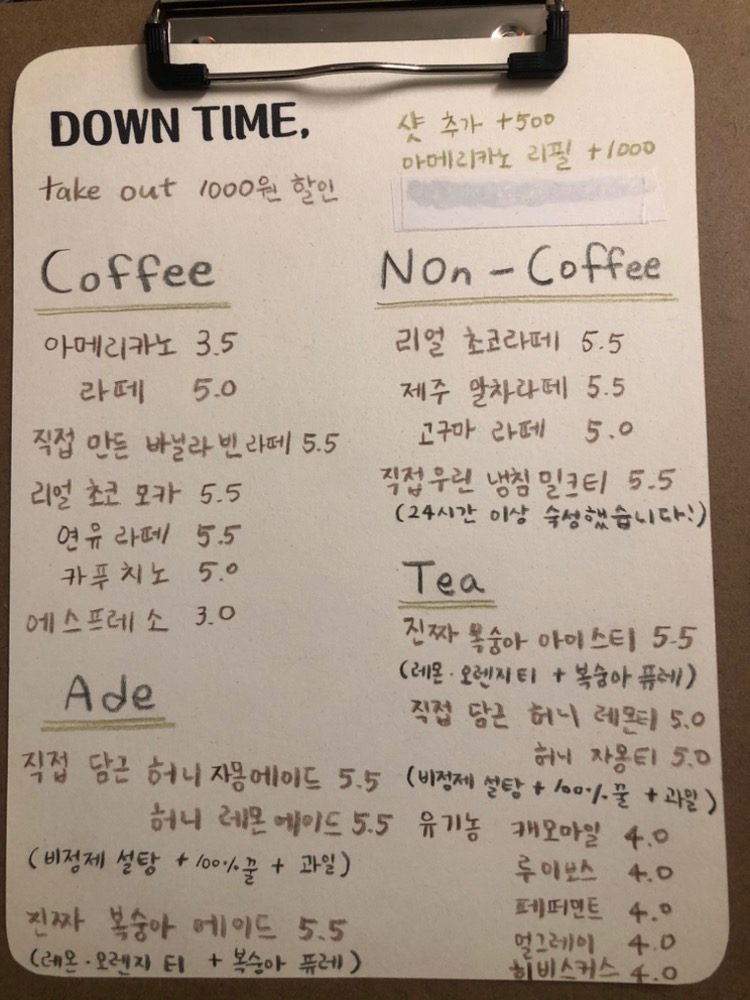 DOWN TIME,
take out 1000원 할인
샷 추가 +500
아메리카노 리필 +1000
Coffee
아메리카노 3.5
라떼 5.0
직접 만든 바닐라빈라떼 5.5
리얼 초코 모카 5.5
연유라떼 5.5
카푸치노 5.0
에스프레소 3.0
Ade
직접 담근 허니 자몽에이드 5.5
허니 레몬에이드 5.5
(비정제 설탕 + 100% 꿀 + 과일)
진짜 복숭아 에이드 5.5
(레몬·오렌지 티 + 복숭아 퓨레)
Non-Coffee
리얼 초코라떼 5.5
제주 말차라떼 5.5
고구마 라떼 5.0
직접우린 냉침밀크티 5.5
(24시간 이상 숙성했습니다!)
Tea
진짜 복숭아 아이스티 5.5
(레몬·오렌지티 + 복숭아 퓨레)
직접 담근 허니 레몬티 5.0
허니 자몽티 5.0
(비정제 설탕 + 100% 꿀 + 과일)
유기농 캐모마일 4.0
루이보스 4.0
페퍼민트 4.0
얼그레이 4.0
히비스커스 4.0